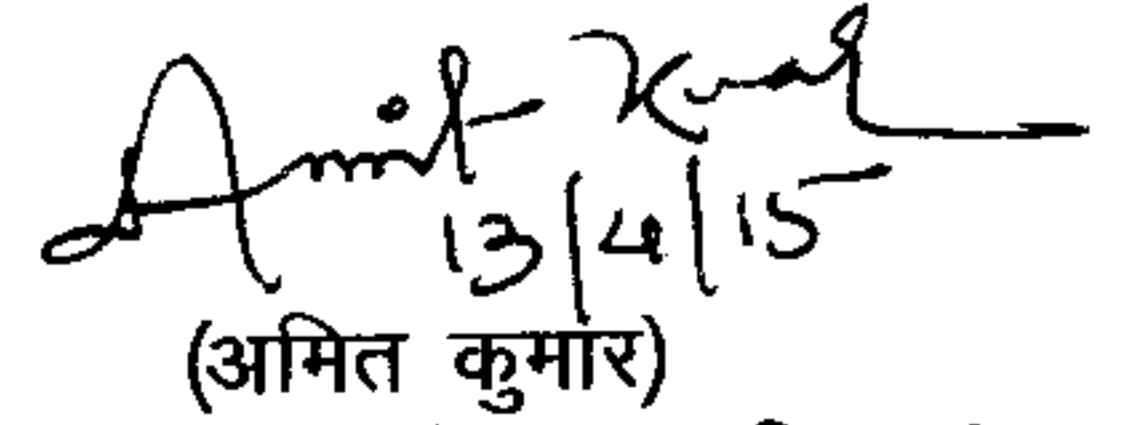 Amit Kumar
13/4/15
(अमित कुमार)